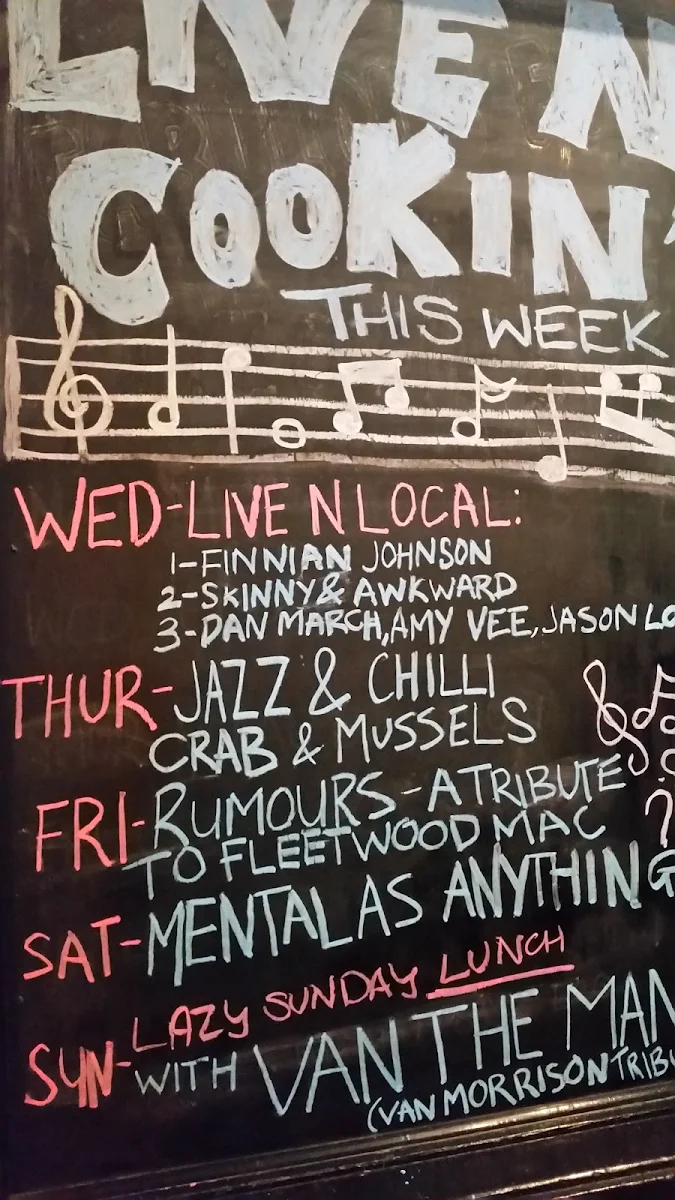 LIVE N
COOKIN'
THIS WEEK
WED-LIVE N LOCAL:
1-FINNIAN JOHNSON
2-SKINNY & AWKWARD
3-DAN MARCH, AMY VEE, JASON LO
THUR-JAZZ & CHILLI
CRAB & MUSSELS
FRI-RUMOURS-A TRIBUTE
TO FLEETWOOD MAC
SAT-MENTAL AS ANYTHING
LAZY SUNDAY LUNCH
SUN-WITH VAN THE MAN
(VAN MORRISON TRIBU